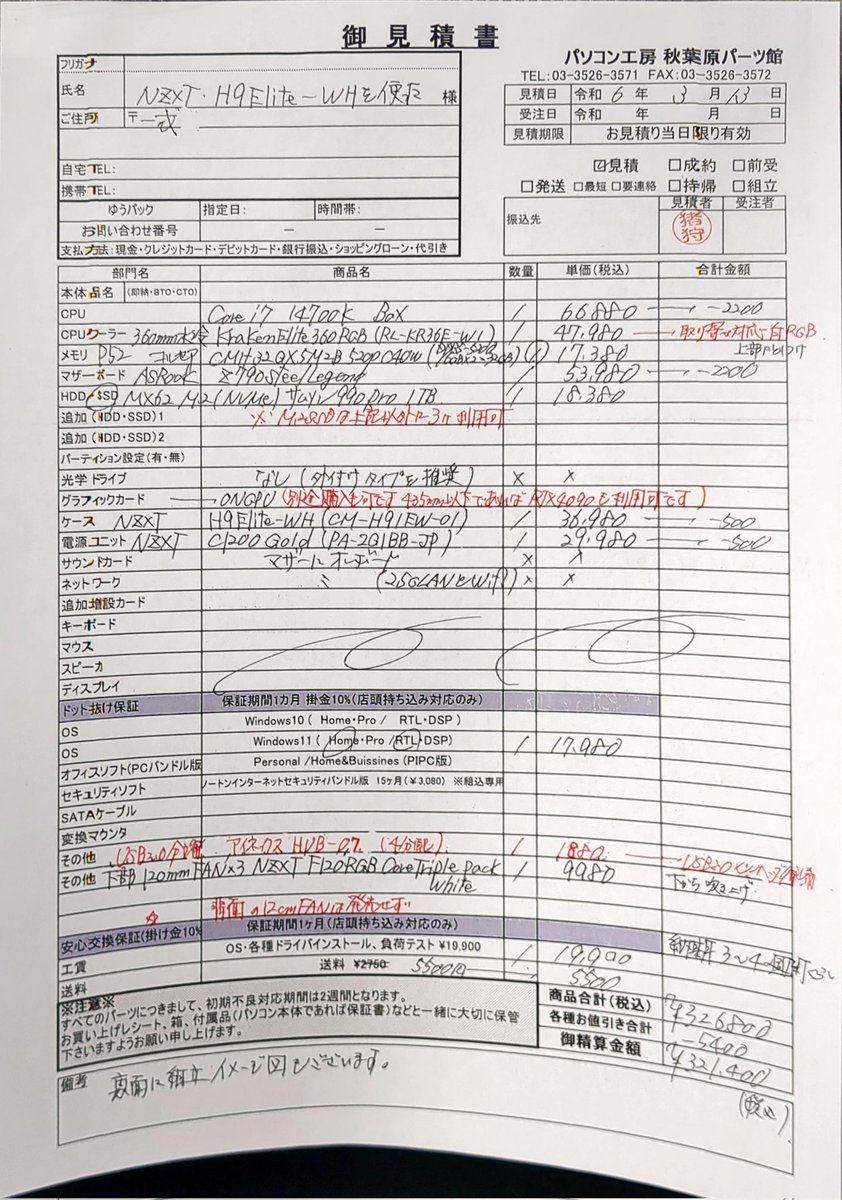 御見積書
パソコン工房 秋葉原パーツ館
TEL:03-3526-3571 FAX:03-3526-3572
フリガナ
氏名 NZXT・H9Elite-WHを使った 様
ご住所 〒 一式
自宅TEL:
携帯TEL:
ゆうパック 指定日: 時間帯:
お問い合わせ番号 ー ー
支払方法:現金・クレジットカード・デビットカード・銀行振込・ショッピングローン・代引き
見積日 令和 6 年 3 月 13 日
受注日 令和 年 月 日
見積期限 お見積り当日限り有効
☑見積 □成約 □前受
□発送 □最短 □要連絡 □持帰 □組立
振込先 見積者 受注者
猪狩
部門名 商品名 数量 単価(税込) 合計金額
本体品名 (即納・BTO・CTO)
CPU Core i7 14700K Box 1 66,880 → -2200
CPUクーラー 360mm水冷 Kraken Elite 360 RGB (RL-KR36E-W1) 1 47,980 → 取り寄せ対応 白RGB
上部に
メモリ コルセア CMH32GX5M2B5200C40W (DDR5-5200 16GBX2=32GB) 1 17,380
マザーボード ASRock Z790 Steel Legend 1 53,980 → -2200
HDD・SSD M.2(NVMe) 990Pro 1TB 1 18,380
追加(HDD・SSD)1 ※M.2SSDは上記以外に3ヶ利用可
追加(HDD・SSD)2
パーティション設定(有・無)
光学ドライブ なし(外付タイプを推奨) × ×
グラフィックカード → 0NGPU (別途購入も可です 435mm以下であればRTX4090も利用可です)
ケース NZXT H9Elite-WH (CM-H91EW-01) 1 36,980 → -500
電源ユニット NZXT C1200 Gold (PA-2G1BB-JP) 1 29,980 → -500
サウンドカード マザーにオンボード × ×
ネットワーク 〃 (2.5GLANとWifi) × ×
追加増設カード
キーボード
マウス
スピーカ
ディスプレイ
ドット抜け保証 保証期間1カ月 掛金10%(店頭持ち込み対応のみ)
OS Windows10 ( Home・Pro / RTL・DSP )
OS Windows11 ( Home・Pro / RTL・DSP) 1 17,980
オフィスソフト(PCバンドル版 Personal /Home&Buissines (PIPC版)
セキュリティソフト ノートンインターネットセキュリティバンドル版 15ヶ月(¥3,080) ※組込専用
SATAケーブル
変換マウンタ
その他 USB2.0分配 アイネックス HUB-07 (4分配) 1 1880
その他 下部 120mmFAN×3 NZXT F120RGB Core Triple pack White 1 9980 下から吹き上げ
背面の12cmFANは発光せず
安心交換保証(掛け金10% 保証期間1ヶ月(店頭持ち込み対応のみ)
工賃 OS・各種ドライバインストール、負荷テスト ¥19,900 1 19,900
送料 送料 ¥2750 5500円 5500
※注意※
すべてのパーツにつきまして、初期不良対応期間は2週間となります。
お買い上げレシート、箱、付属品(パソコン本体であれば保証書)などと一緒に大切に保管
下さいますようお願い申し上げます。
商品合計(税込) ¥326,800
各種お値引き合計 -5400
御精算金額 ¥321,400
(税込)
備考 裏面に組立イメージ図もございます。